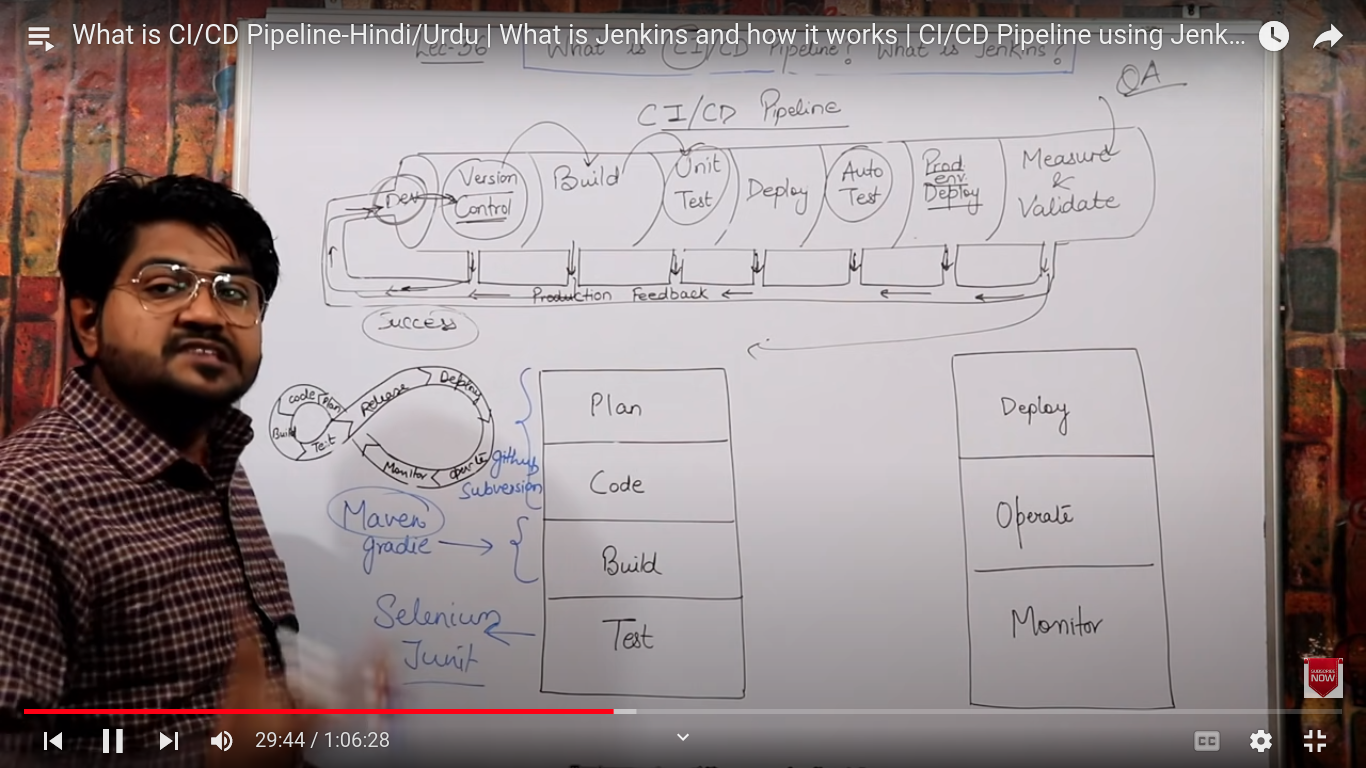 What is CI/CD Pipeline-Hindi/Urdu | What is Jenkins and how it works | CI/CD Pipeline using Jenk...
Lec-36
What is CI/CD Pipeline? What is Jenkins?
QA
CI/CD Pipeline
Dev
Version
Control
Build
Unit
Test
Deploy
Auto
Test
Prod
env.
Deploy
Measure
&
Validate
Production Feedback
Success
code
Plan
Build
Test
Release
Deploy
Operate
Monitor
github
Subversion
Maven
gradle
Selenium
Junit
Plan
Code
Build
Test
Deploy
Operate
Monitor
SUBSCRIBE
NOW
29:44 / 1:06:28
CC